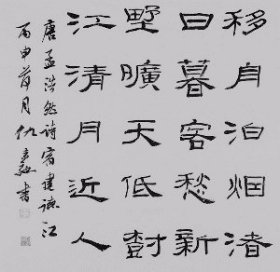 移舟泊烟渚
日暮客愁新
野曠天低樹
江清月近人
唐孟浩然詩宿建德江
丙申 月仇 書